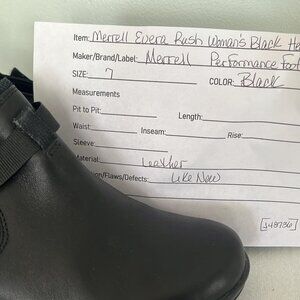 Item: Merrell Evera Rush Woman's Black He
Maker/Brand/Label: Merrell Performance Foot
SIZE: 7 COLOR: Black
Measurements
Pit to Pit: Length:
Waist: Inseam: Rise:
Sleeve:
Material: Leather
ion/Flaws/Defects: Like New